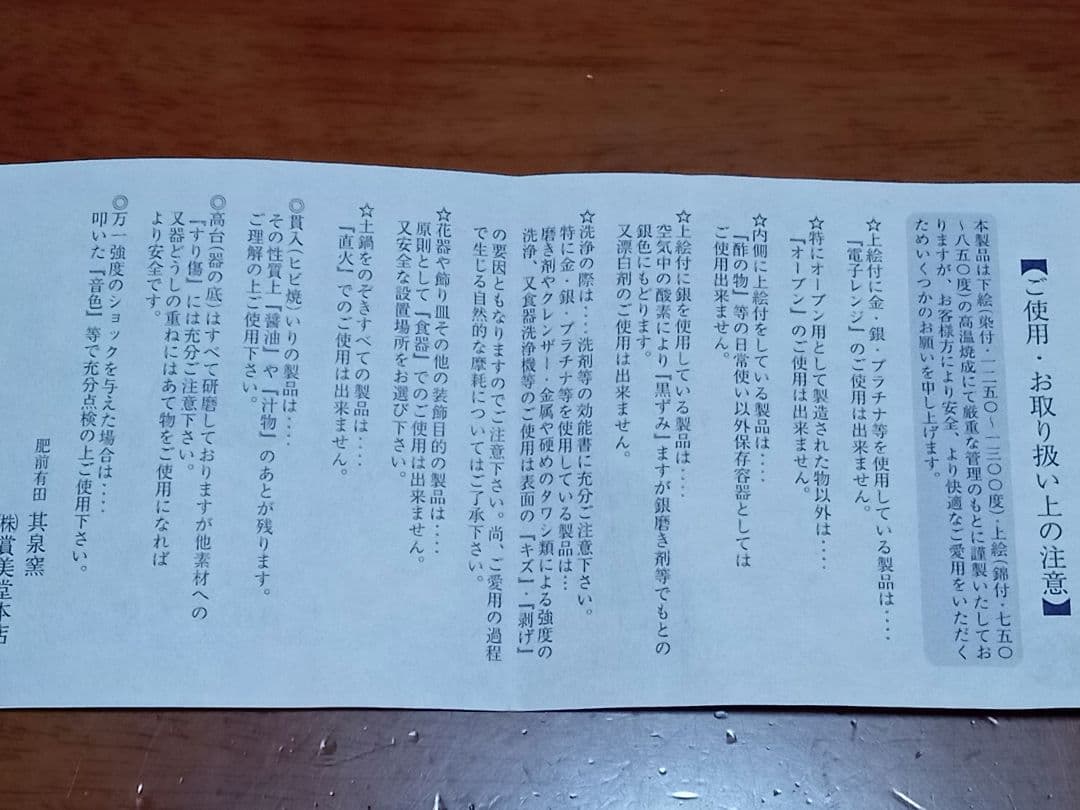 【ご使用・お取り扱い上の注意】
本製品は下絵(染付・一二五〇〜一三〇〇度)・上絵(錦付・七五〇
〜八五〇度)の高温焼成にて厳重な管理のもとに謹製いたしてお
りますが、お客様方により安全、より快適なご愛用をいただく
ためいくつかのお願いを申し上げます。
☆上絵付に金・銀・プラチナ等を使用している製品は‥‥
『電子レンジ』のご使用は出来ません。
☆特にオーブン用として製造された物以外は‥‥
『オーブン』のご使用は出来ません。
☆内側に上絵付をしている製品は‥‥
『酢の物』等の日常使い以外保存容器としては
ご使用出来ません。
☆上絵付に銀を使用している製品は‥‥
空気中の酸素により『黒ずみ』ますが銀磨き剤等でもとの
銀色にもどります。
又漂白剤のご使用は出来ません。
☆洗浄の際は‥‥洗剤等の効能書に充分ご注意下さい。
特に金・銀・プラチナ等を使用している製品は‥
磨き剤やクレンザー・金属や硬めのタワシ類による強度の
洗浄、又食器洗浄機等のご使用は表面の『キズ』・『剥げ』
の要因ともなりますのでご注意下さい。尚、ご愛用の過程
で生じる自然的な摩耗についてはご了承下さい。
☆花器や飾り皿その他の装飾目的の製品は‥‥
原則として『食器』でのご使用は出来ません。
又安全な設置場所をお選び下さい。
☆土鍋をのぞきすべての製品は‥‥
『直火』でのご使用は出来ません。
◎貫入(ヒビ焼)いりの製品は‥‥
その性質上『醤油』や『汁物』のあとが残ります。
ご理解の上ご使用下さい。
◎高台(器の底)はすべて研磨しておりますが他素材への
『すり傷』には充分ご注意下さい。
又器どうしの重ねにはあて物をご使用になれば
より安全です。
◎万一強度のショックを与えた場合は‥‥
叩いた『音色』等で充分点検の上ご使用下さい。
肥前有田 其泉窯
㈱賞美堂本店